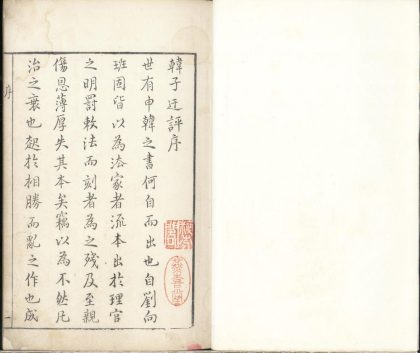 韓子迂評序
世有申韓之書何自而出也自劉向
班固皆以為法家者流本出於理官
之明罰敕法而刻者為之殘及至親
傷恩薄厚失其本矣竊以為不然凡
治之衰也起於相勝而亂之作也成
序
一